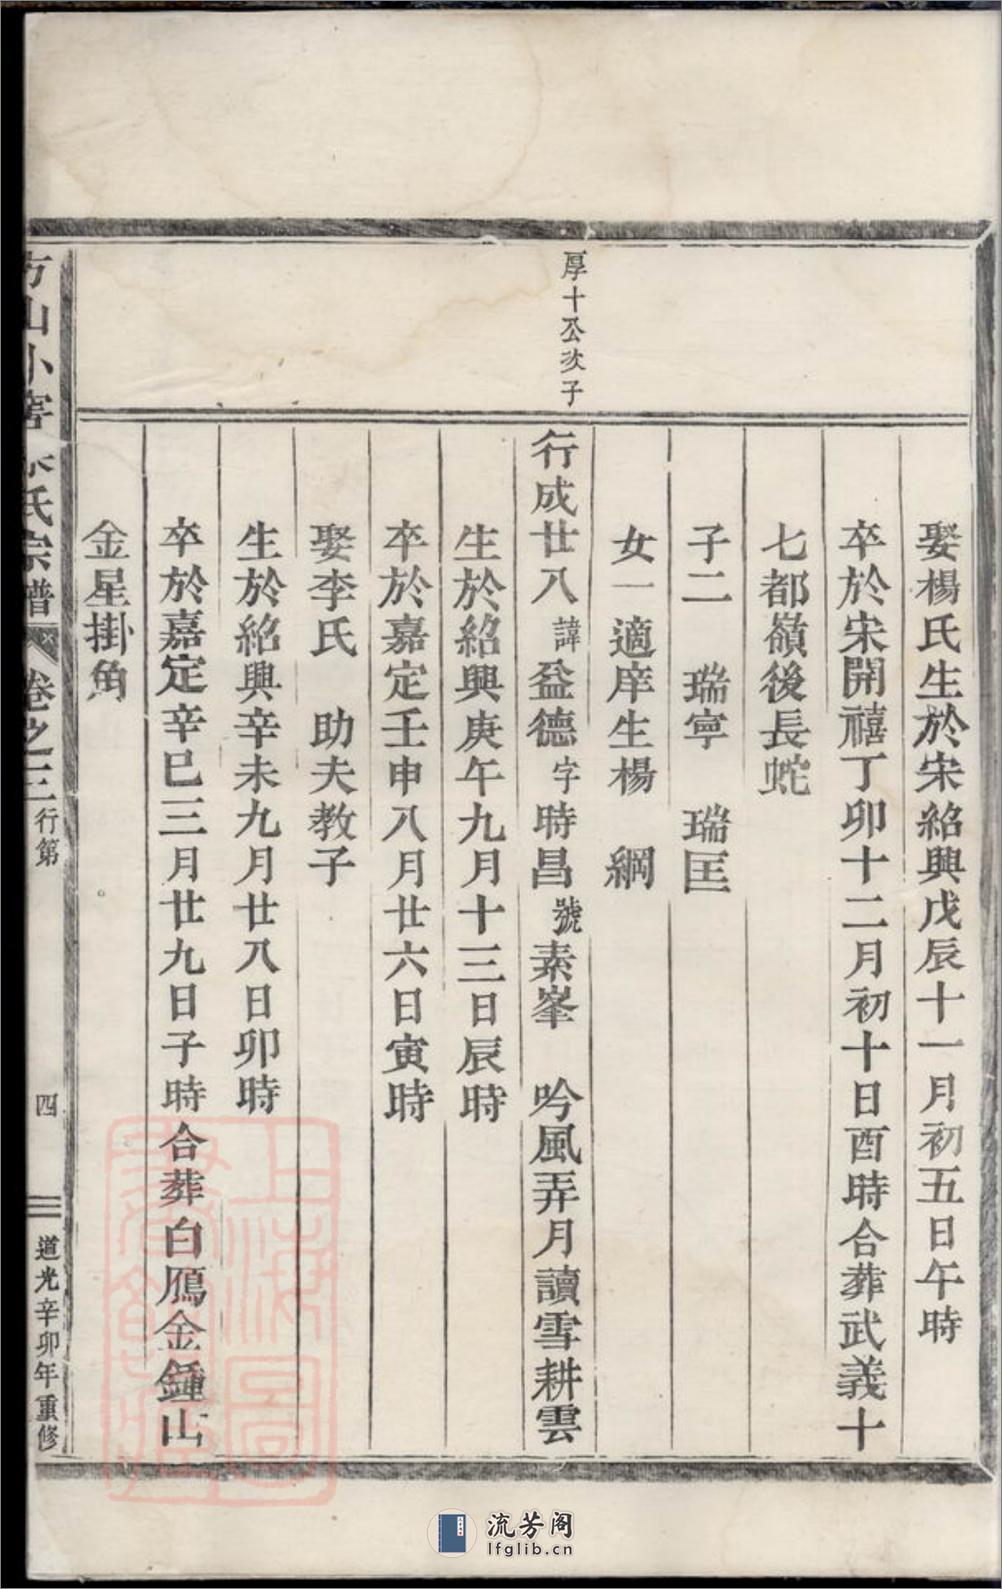 娶楊氏生於宋紹興戊辰十一月初五日午時
卒於宋開禧丁卯十二月初十日酉時合葬武義十
七都嶺後長蛇
子二 瑞寜 瑞匡
女一適庠生楊 綱
厚十公次子
行成廿八諱益德字時昌號素峯 吟風弄月讀雪耕雲
生於紹興庚午九月十三日辰時
卒於嘉定壬申八月廿六日寅時
娶李氏 助夫教子
生於紹興辛未九月廿八日卯時
卒於嘉定辛巳三月廿九日子時合葬白鴈金鍾山
金星掛角
方山小窖 氏宗譜 卷之三 行第 四 道光辛卯年重修
上海圖書館藏
流芳阁
lfglib.cn